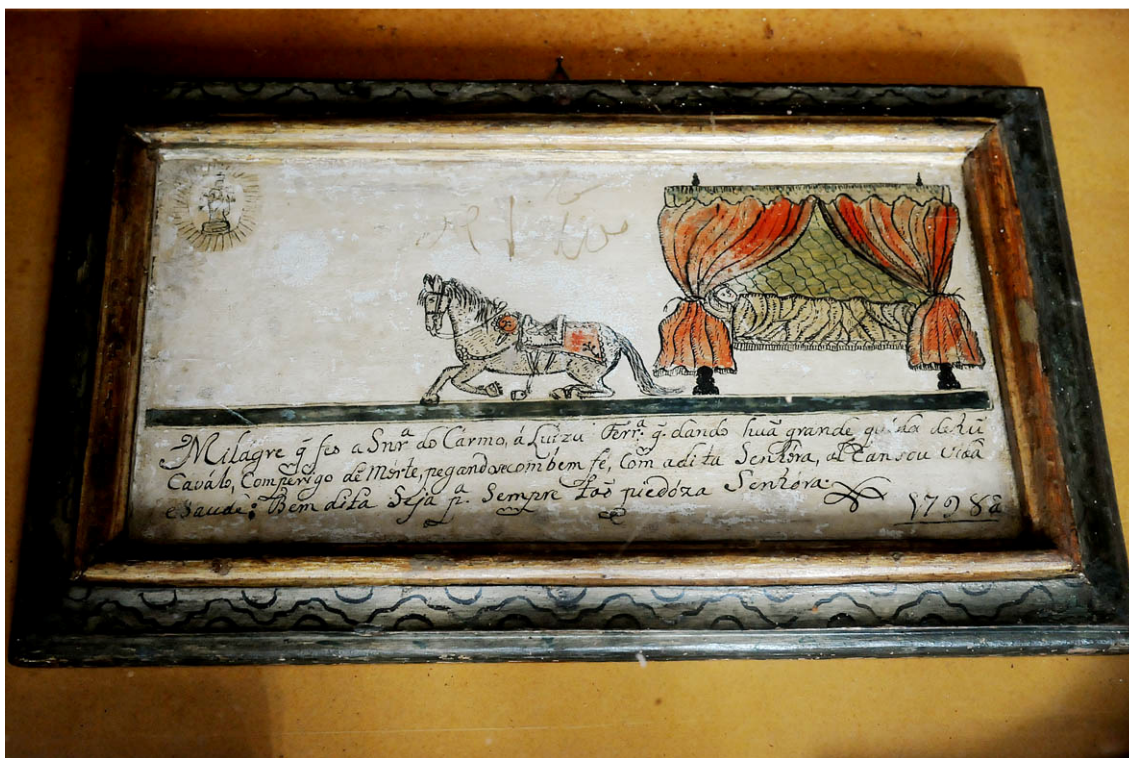 Milagre q̃ fes a Snr.ª do Cármo, á Luizu Ferr.ª q̃. dando huã grande quéda de hũ
Caválo, Comperigo de Mórte, pegandosecombem fé, Com adita Senhóra, al Cansou vida
eSaude: Bem dita Seja p.ª Sempre taõ piedóza Senhóra.
1798ã